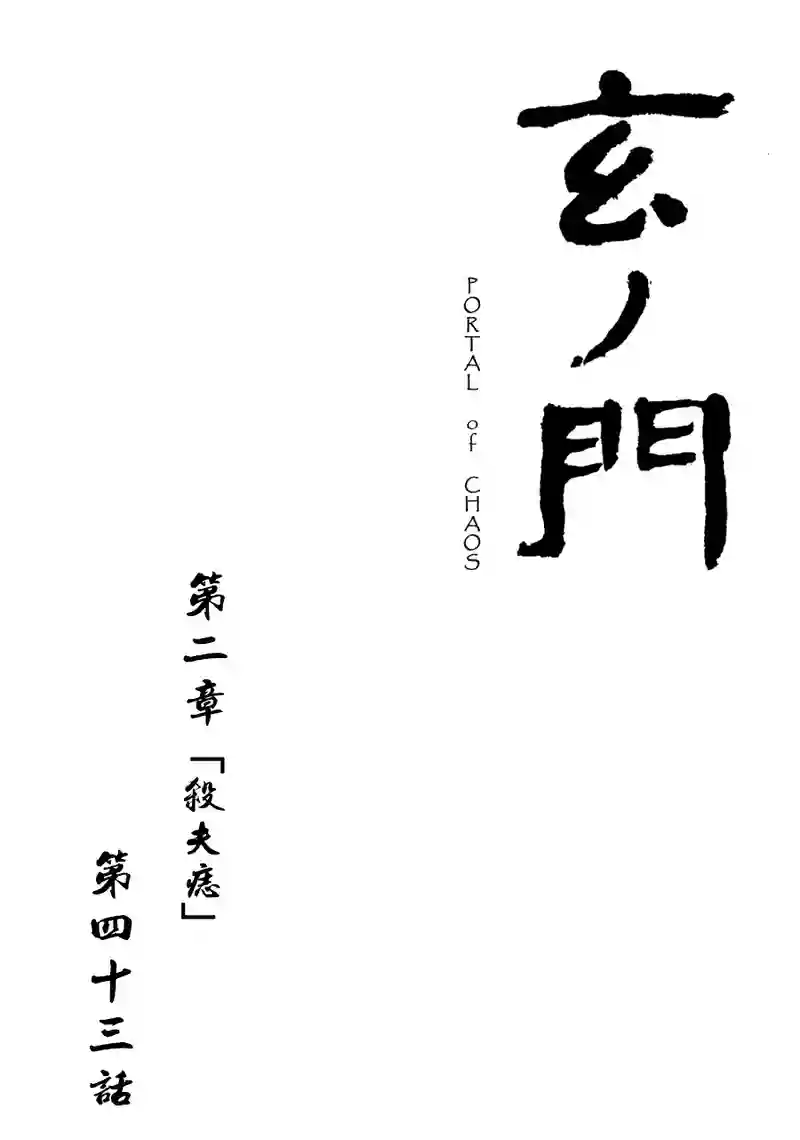 玄ノ門
PORTAL of CHAOS
第二章「殺夫痣」
第四十三話